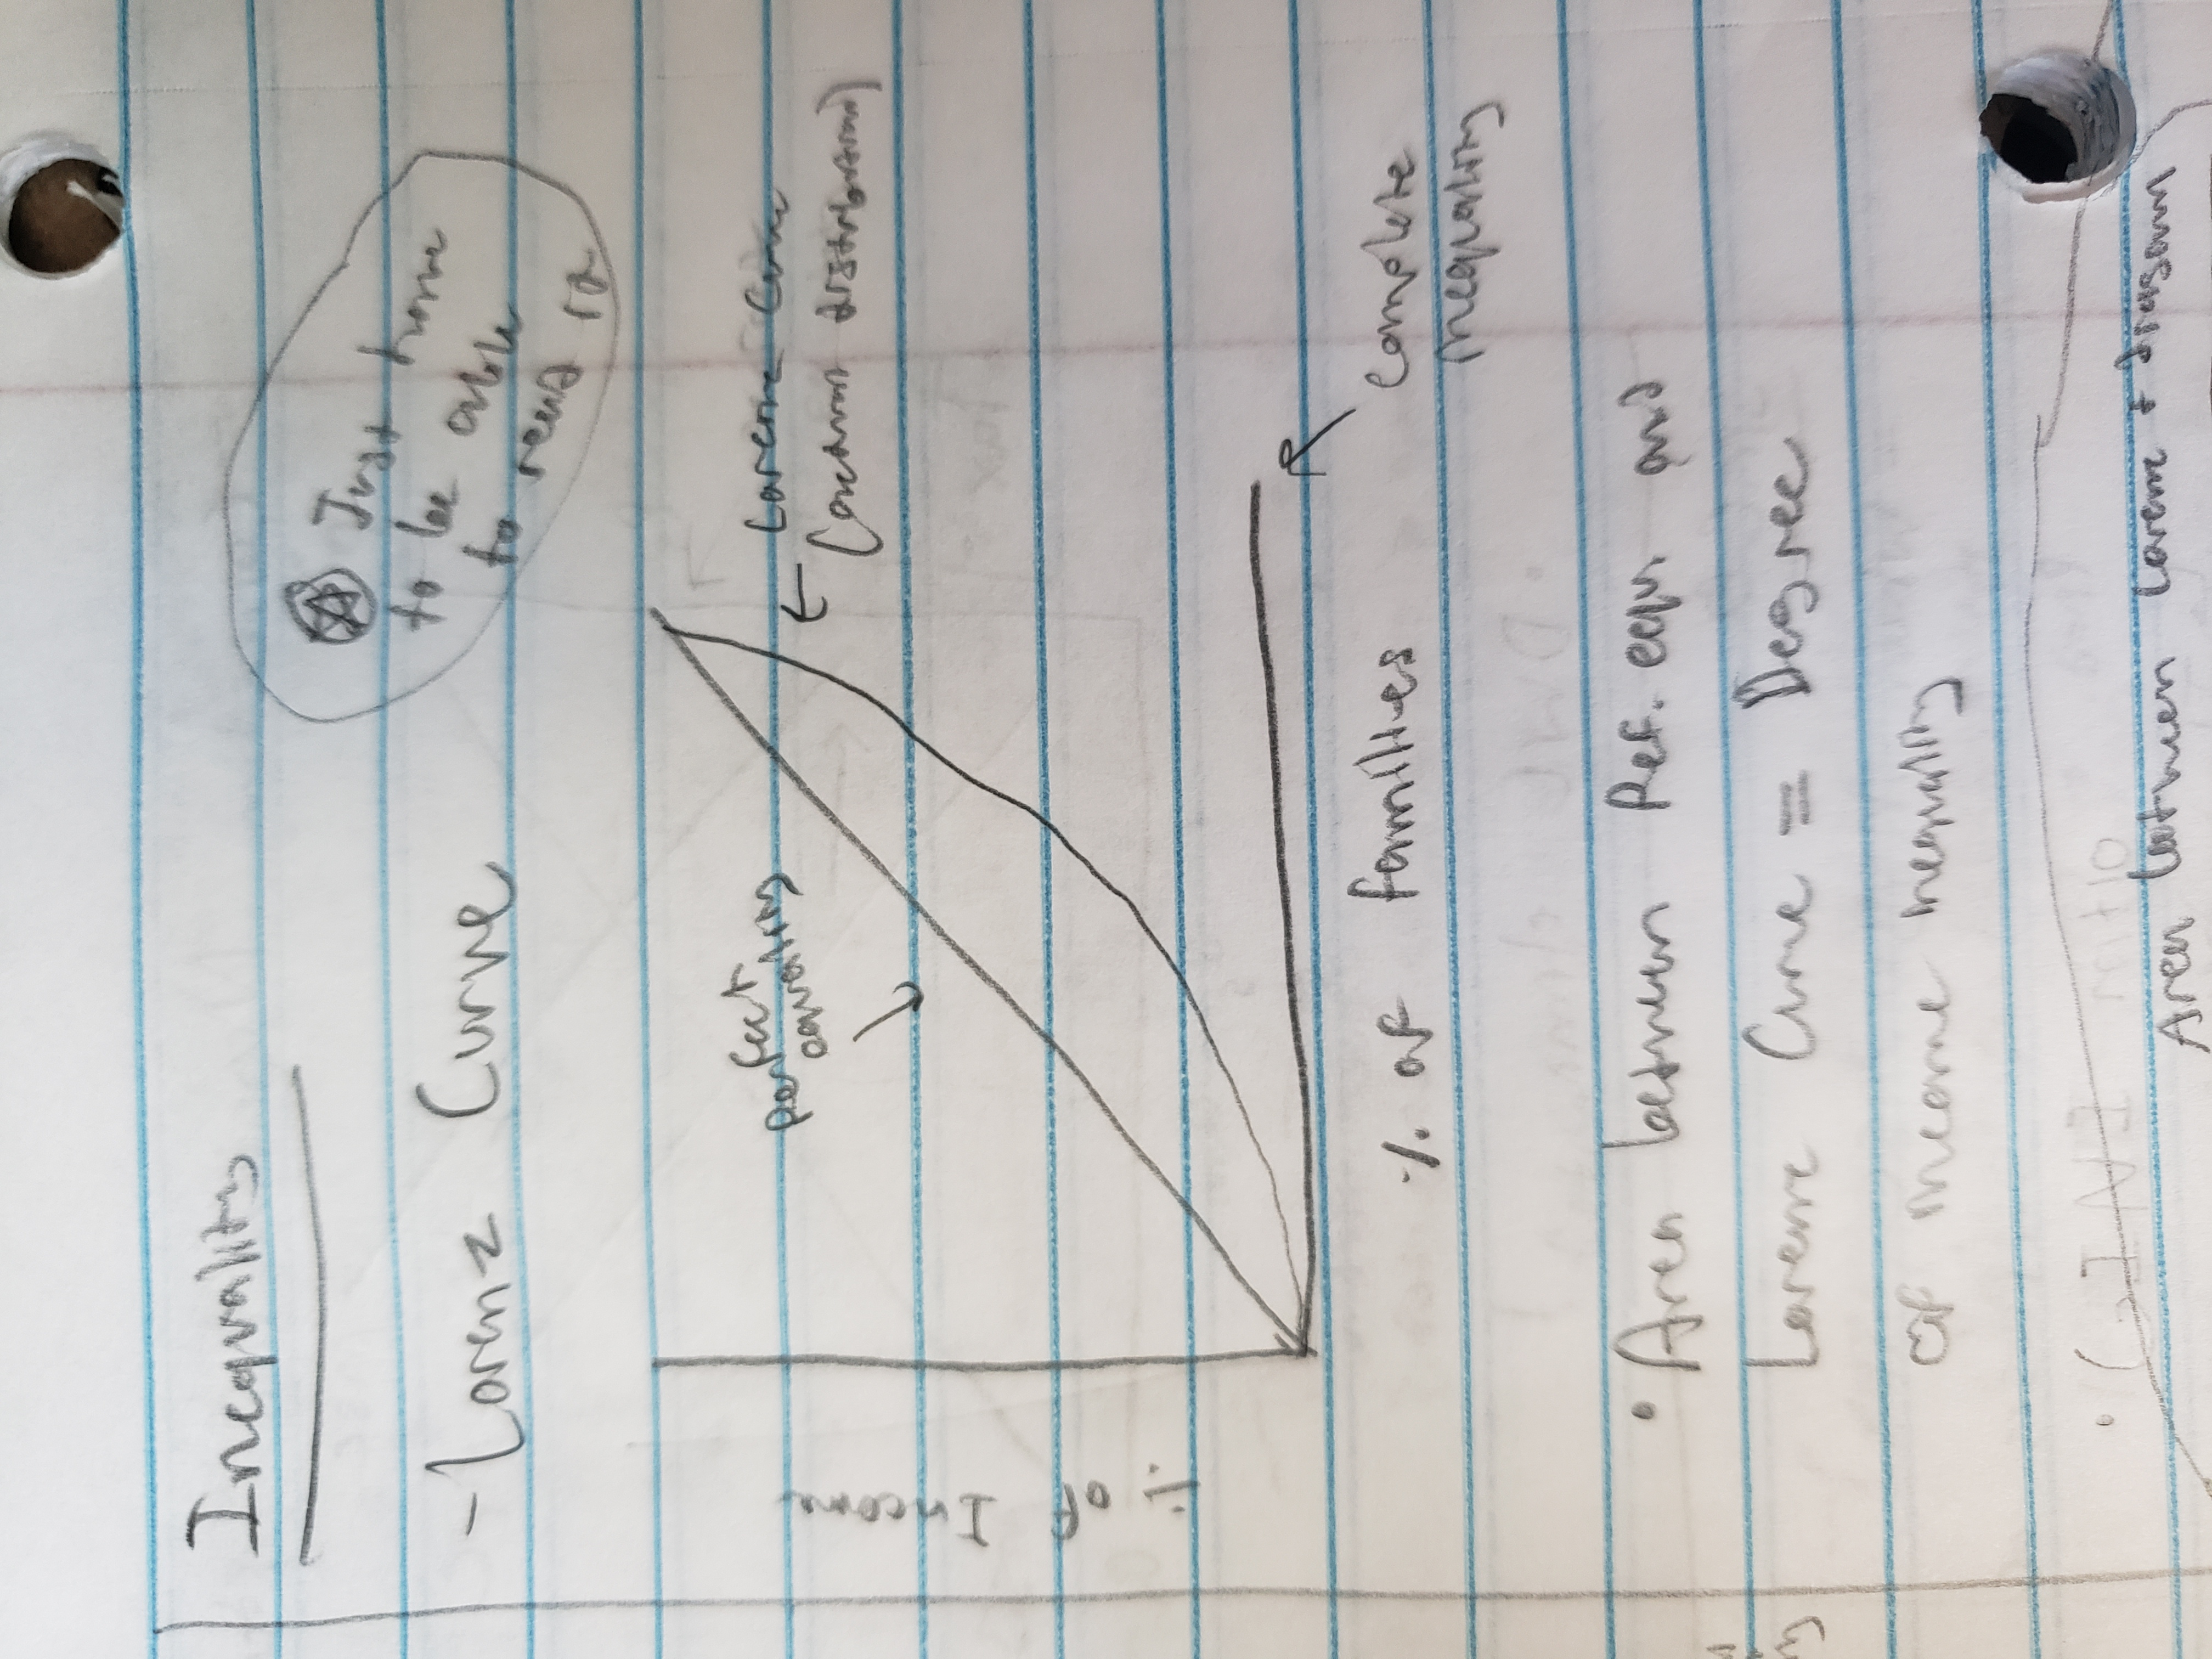 Inequality
- Lorenz Curve
Just have
to be able
to read it
perfect
equality
Lorenz Curve
(actual distribution)
% of
Income
% of families
complete
inequality
• Area between Pef. equ. and
Lorenz Curve = Degree
of income inequality
Area between Lorenz + diagonal